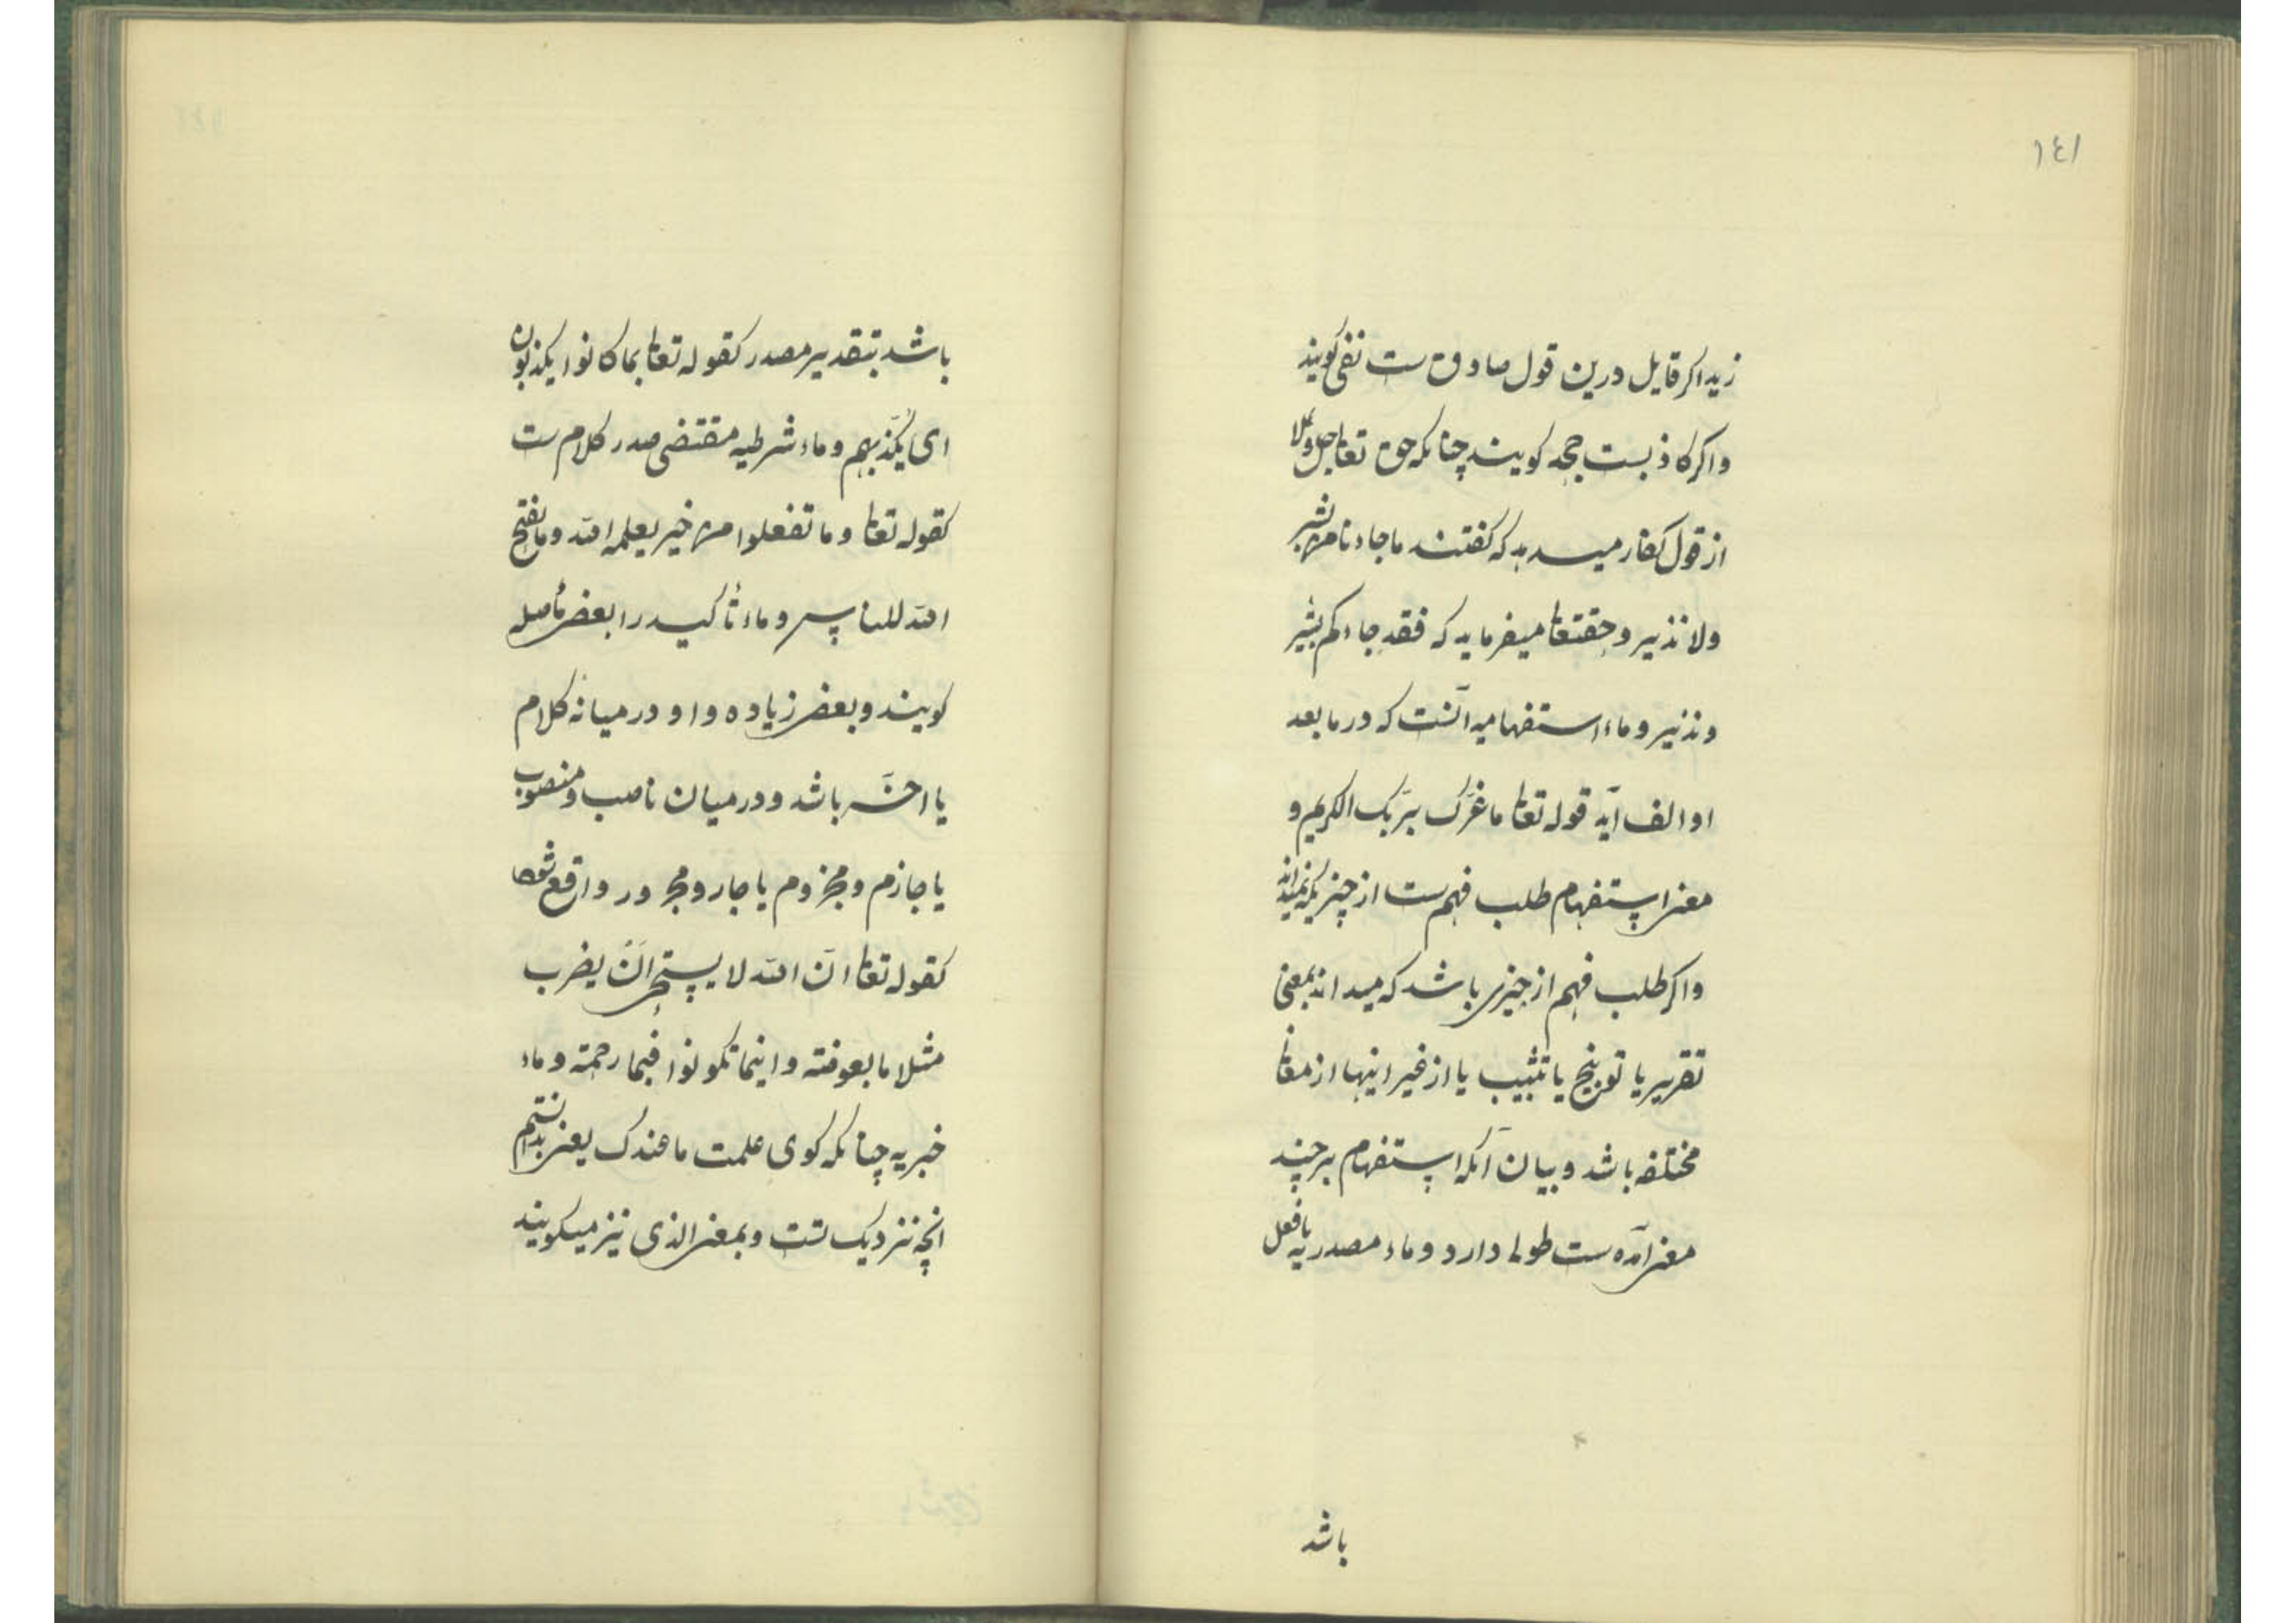 ١٤١
زید اکر قایل درین قول صادق ست نفی کویند
واکر کاذبست جحد کویند چنانکه حق تعا جل وعلا
از قول کفار میدهد که کفتند ما جاءنا من بشیر
ولا نذیر وحقتعا میفرماید که فقد جاءکم بشیر
ونذیر وماء استفهامیه آنست که در ما بعد
او الف آید قوله تعا ما غرّک بربّک الکریم و
معنی استفهام طلب فهم ست از چیزیکه نمیداند
واکر طلب فهم از چیزی باشد که میداند بمعنی
تقریر یا توبیخ یا تثبیب یا از غیر اینها از معا
مختلفه باشد وبیان آنکه استفهام بر چند
معنی آمده ست طولی دارد وماء مصدریه با فعل
باشد
باشد بتقدیر مصدر کقوله تعا بما کانوا یکذبون
ای یکذّبهم وماء شرطیه مقتضی صدر کلام ست
کقوله تعا وما تفعلوا من خیر یعلمه الله وما یفتح
الله للناس وماء تأکید را بعضی مأصله
کویند وبعضی زیاده واو در میانه کلام
یا اخر باشد ودر میان ناصب ومنصوب
یا جازم ومجزوم یا جار ومجرور واقع شود
کقوله تعا انّ الله لا یستحی ان یضرب
مثلا ما بعوضة واینما تکونوا فبما رحمة وماء
خبریه چنانکه کوی علمت ما عندک یعنی بدانستم
انچه نزدیک تست وبمعنی الذی نیز میکویند